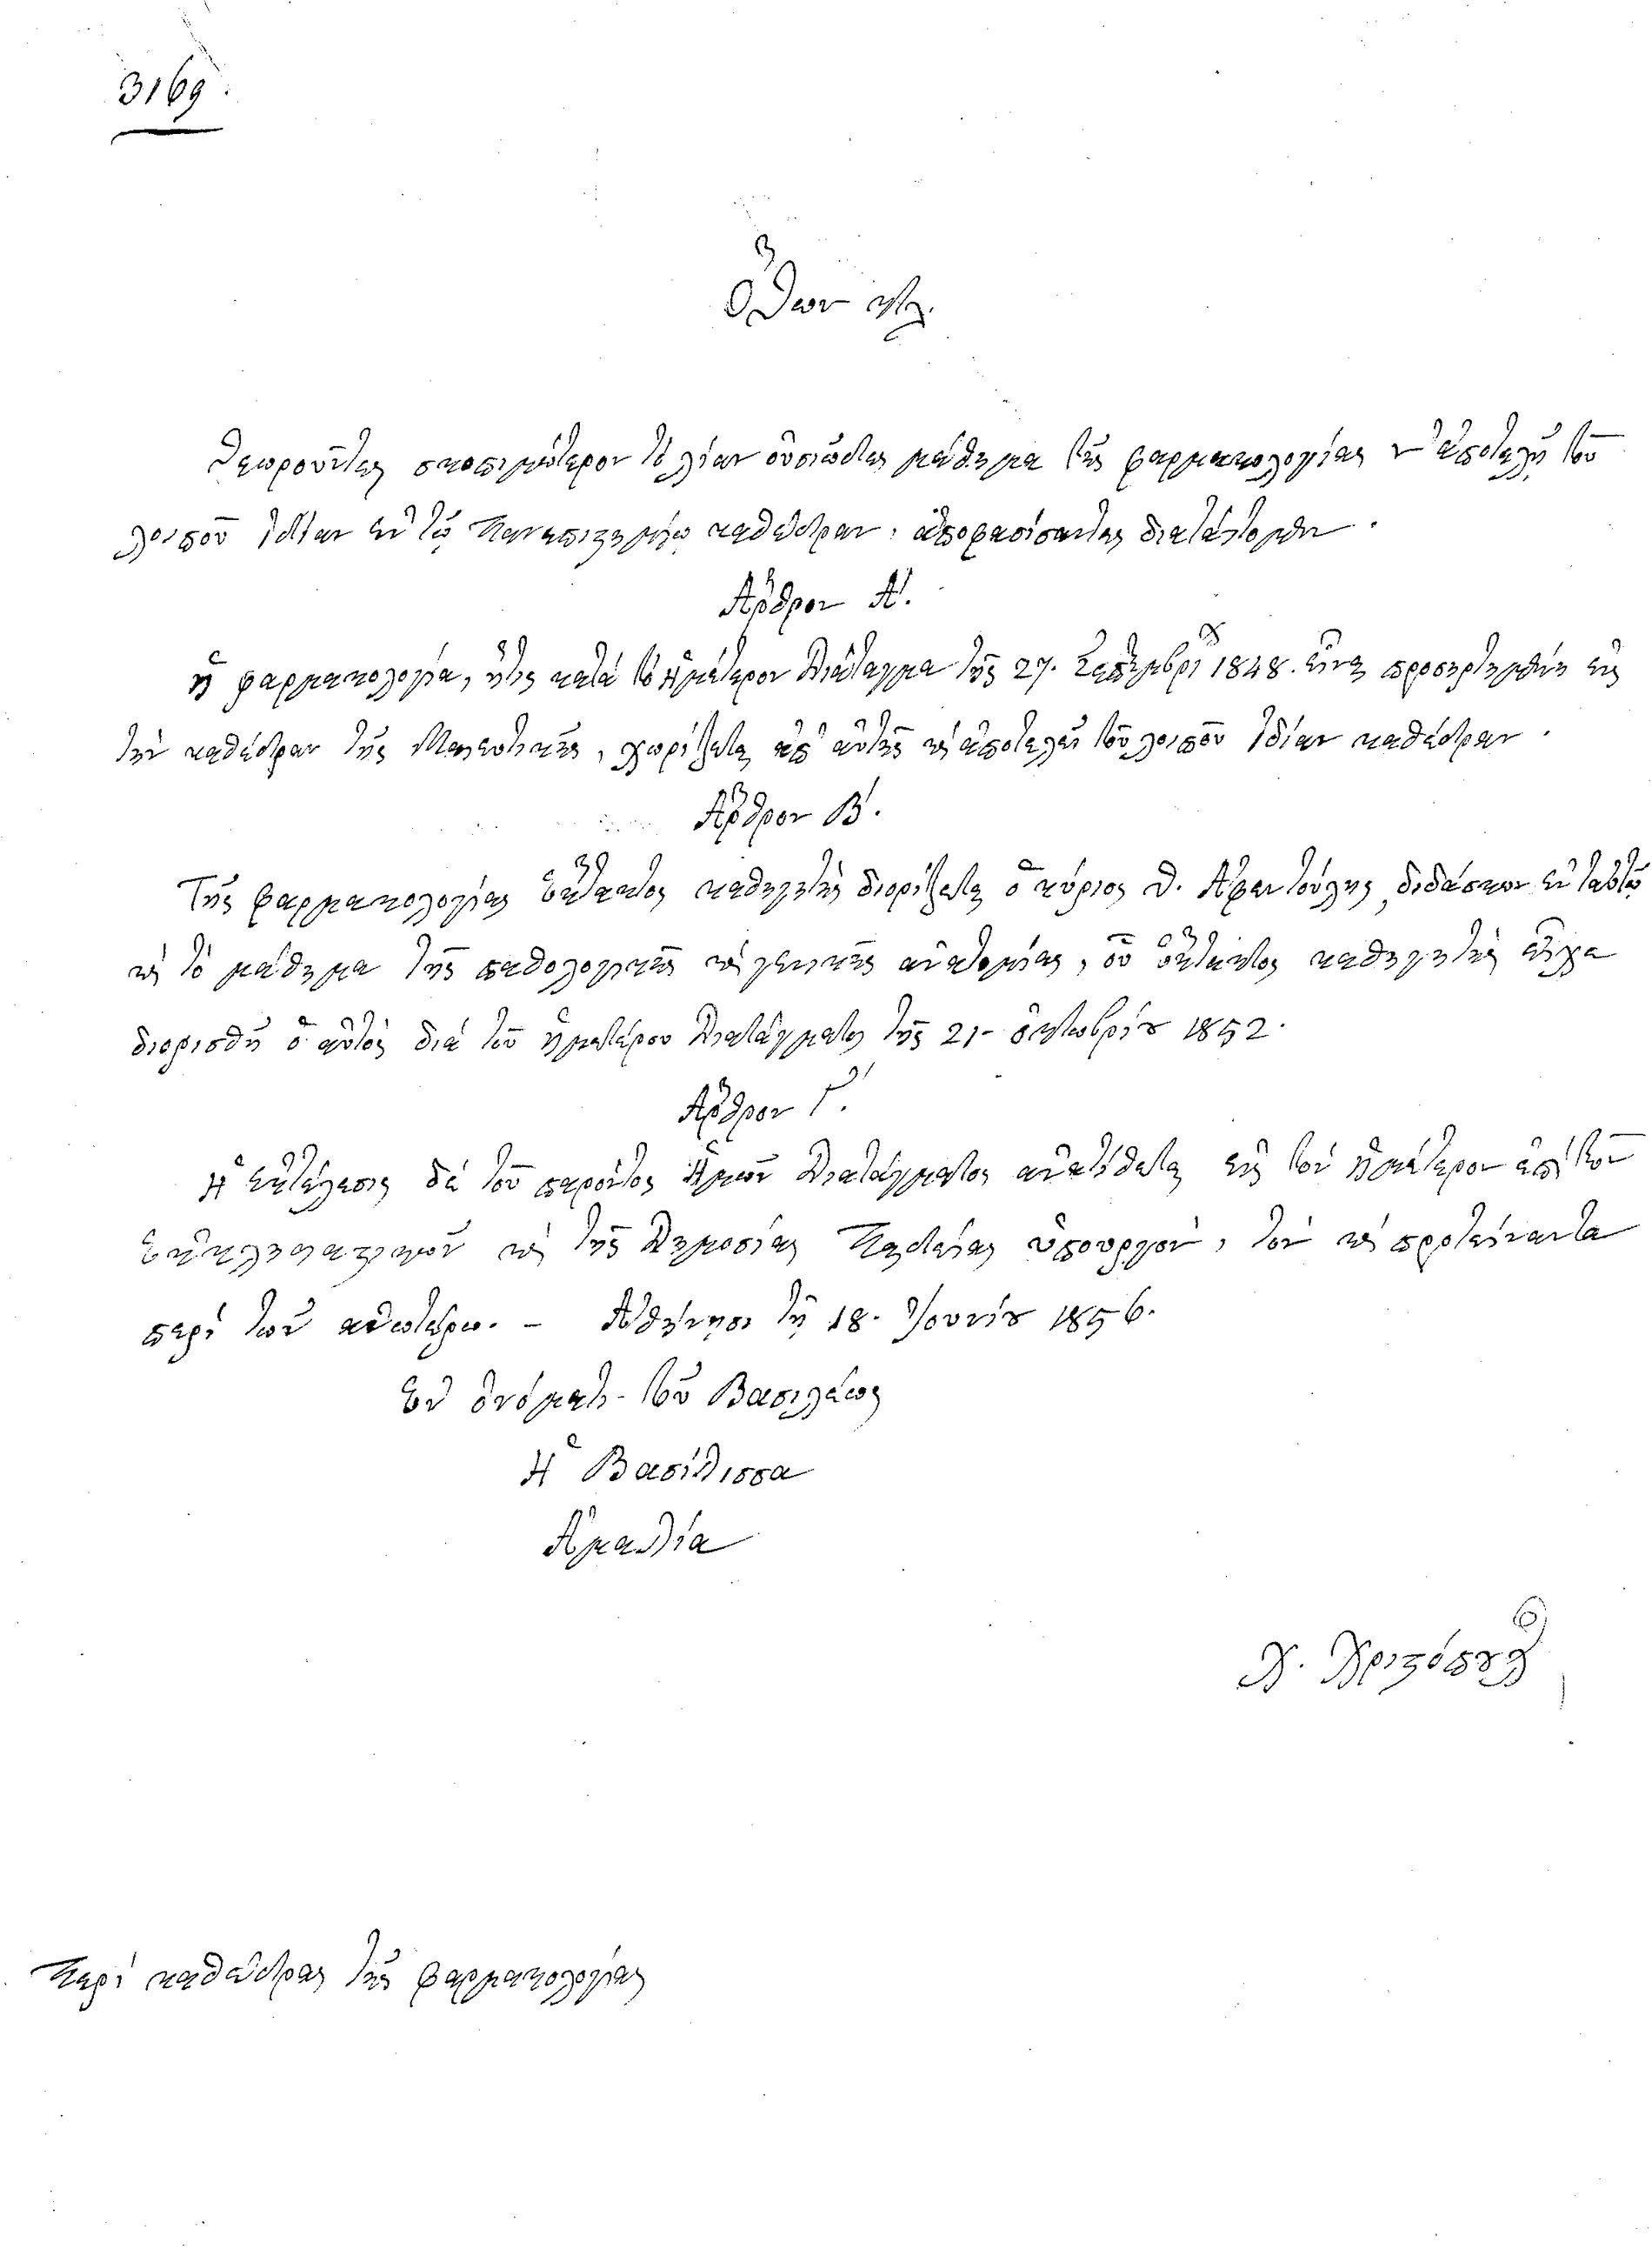 3169.
Ὄθων κτλ.
Θεωροῦντες σκοπιμώτερον τὸ λίαν οὐσιῶδες μάθημα τῆς φαρμακολογίας ν' ἀποτελῇ τοῦ
λοιποῦ ἰδίαν ἐν τῷ Πανεπιστημίῳ καθέδραν, ἀποφασίσαντες διατάττομεν.
Ἄρθρον Α'.
Ἡ φαρμακολογία, ἥτις κατὰ τὸ Ἡμέτερον Διάταγμα τῆς 27. Σεπτεμβρίου 1848. εἶναι προσηρτημένη εἰς
τὴν καθέδραν τῆς Μαιευτικῆς, χωρίζεται ἀπ' αὐτῆς καὶ ἀποτελεῖ τοῦ λοιποῦ ἰδίαν καθέδραν.
Ἄρθρον Β'.
Τῆς φαρμακολογίας ἔκτακτος καθηγητὴς διορίζεται ὁ κύριος Θ. Ἀφεντούλης, διδάσκων ἐν ταὐτῷ
καὶ τὸ μάθημα τῆς παθολογικῆς καὶ γενικῆς ἀνατομίας, οὗ ἔκτακτος καθηγητὴς εἶχε
διορισθῆ ὁ αὐτὸς διὰ τοῦ ἡμετέρου Διατάγματος τῆς 21- Ὀκτωβρίου 1852.
Ἄρθρον Γ'.
Ἡ ἐκτέλεσις δὲ τοῦ παρόντος Ἡμῶν Διατάγματος ἀνατίθεται εἰς τὸν ἡμέτερον ἐπὶ τῶν
Ἐκκλησιαστικῶν καὶ τῆς Δημοσίας Παιδείας ὑπουργόν, τὸν καὶ προτείναντα
περὶ τῶν ἀνωτέρω. - Ἀθήνησι τῇ 18. Ἰουνίου 1856.
Ἐν ὀνόματι τοῦ Βασιλέως
Ἡ Βασίλισσα
Ἀμαλία
Χ. Χριστόπουλος
Περὶ καθέδρας τῆς φαρμακολογίας